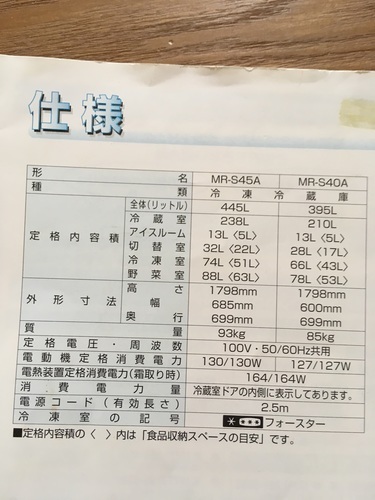 仕様
形名 MR-S45A MR-S40A
種類 冷凍冷蔵庫
定格内容積 全体(リットル) 445L 395L
冷蔵室 238L 210L
アイスルーム 13L〈5L〉 13L〈5L〉
切替室 32L〈22L〉 28L〈17L〉
冷凍室 74L〈51L〉 66L〈43L〉
野菜室 88L〈63L〉 78L〈53L〉
外形寸法 高さ 1798mm 1798mm
幅 685mm 600mm
奥行 699mm 699mm
質量 93kg 85kg
定格電圧・周波数 100V・50/60Hz共用
電動機定格消費電力 130/130W 127/127W
電熱装置定格消費電力(霜取り時) 164/164W
消費電力量 冷蔵室ドアの内側に表示してあります。
電源コード(有効長さ) 2.5m
冷凍室の記号 フォースター
■定格内容積の〈 〉内は「食品収納スペースの目安」です。